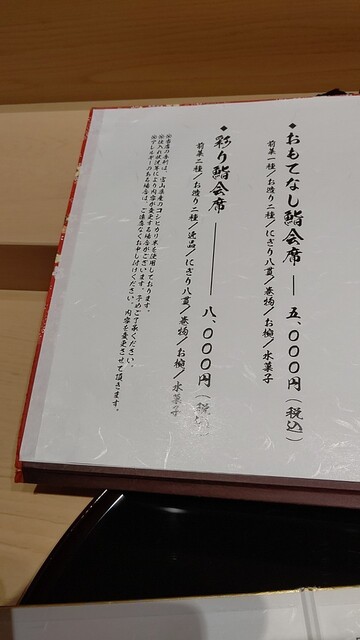 ◆おもてなし鮨会席 ― 五、〇〇〇円(税込)
前菜一種/お造り二種/にぎり八貫/巻物/お椀/水菓子
◆彩り鮨会席 ― 八、〇〇〇円(税込)
前菜二種/お造り二種/逸品/にぎり八貫/巻物/お椀/水菓子
※当店の舎利は、富山県産のコシヒカリ米を使用しております。
※仕入れ状況等により内容が変更する場合がございます。予めご了承ください。
※アレルギーのある場合は、ご遠慮なくお申し付けください。内容を変更させて頂きます。